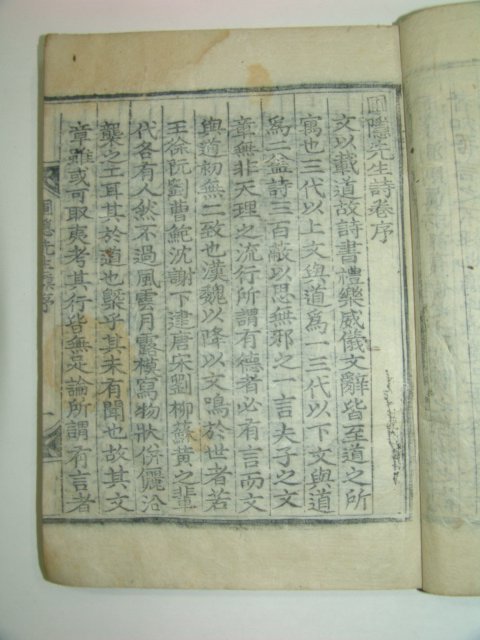 圃隱先生詩卷序
文以載道故詩書禮樂威儀文辭皆至道之所
寓也三代以上文與道爲一三代以下文與道
爲二盖詩三百蔽以思無邪之一言夫子之文
章無非天理之流行所謂有德者必有言而文
與道初無二致也漢魏以降以文鳴於世者若
王徐阮劉曹鮑沈謝下逮唐宋劉柳蘇黃之輩
代各有人然不過風雲月露模寫物狀倂儷沿
襲之工耳其於道也槩乎其未有聞也故其文
章雖或可取夷考其行皆無足論所謂有言者
圃隱先生集序
一